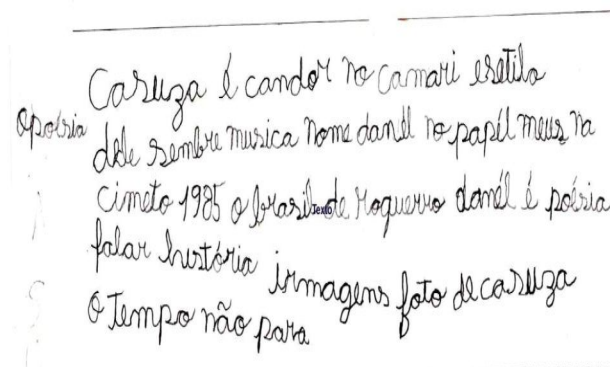 Casuza é candor no camari esetilo
apoésia
dele sembre musica nome danél no papél meus na
cimeto 1985 o brasil de roquerro danél é poésia
Texto
falar história irmagens foto de casuza
o Tempo não para